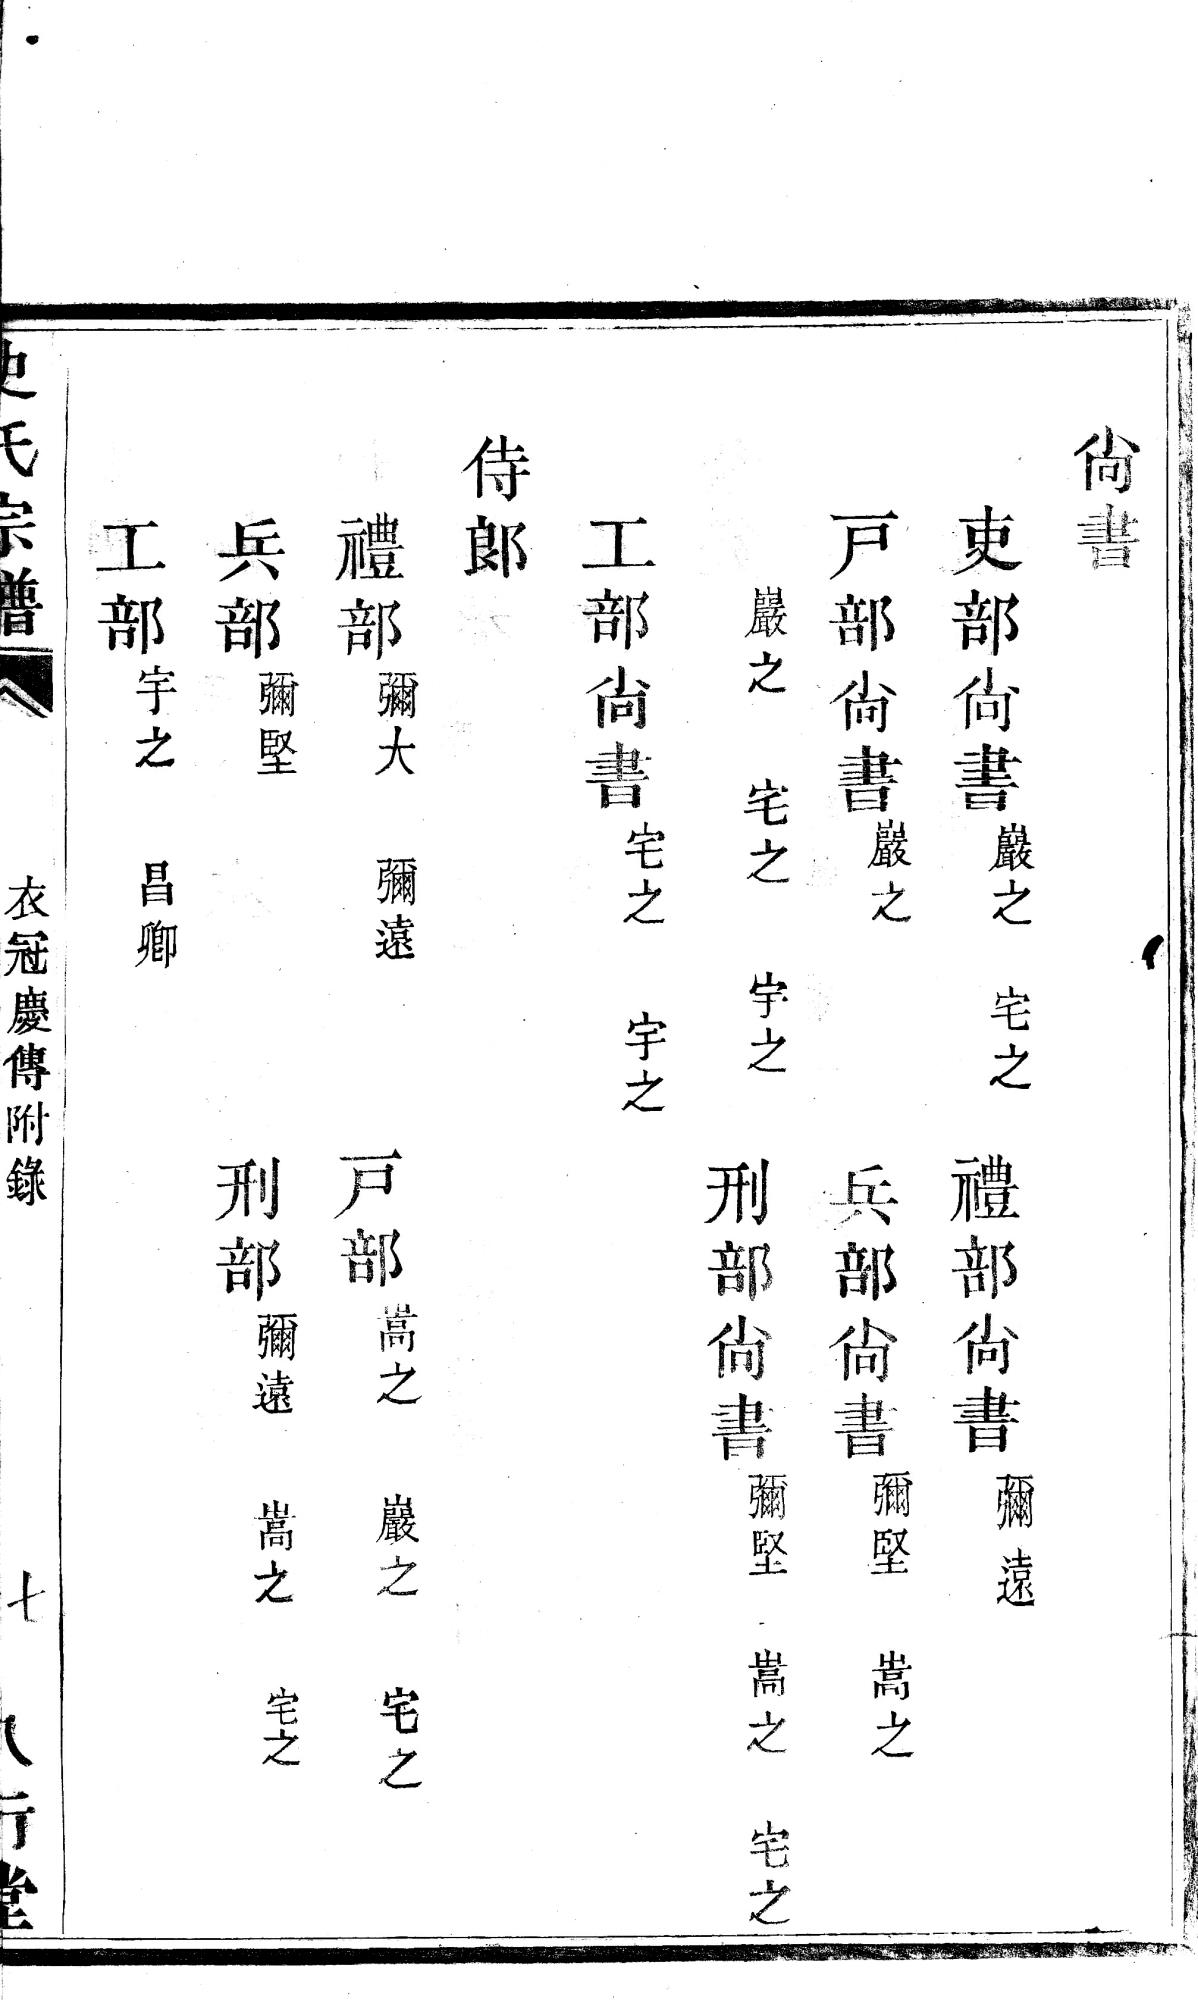 尙書
吏部尙書巖之 宅之 禮部尙書彌遠
戸部尙書巖之 兵部尙書彌堅 嵩之
巖之 宅之 宇之 刑部尙書彌堅 嵩之 宅之
工部尙書宅之 宇之
侍郎
禮部彌大 彌遠 戸部嵩之 巖之 宅之
兵部彌堅 刑部彌遠 嵩之 宅之
工部宇之 昌卿
史氏宗譜 衣冠慶傳附錄 七 八行堂